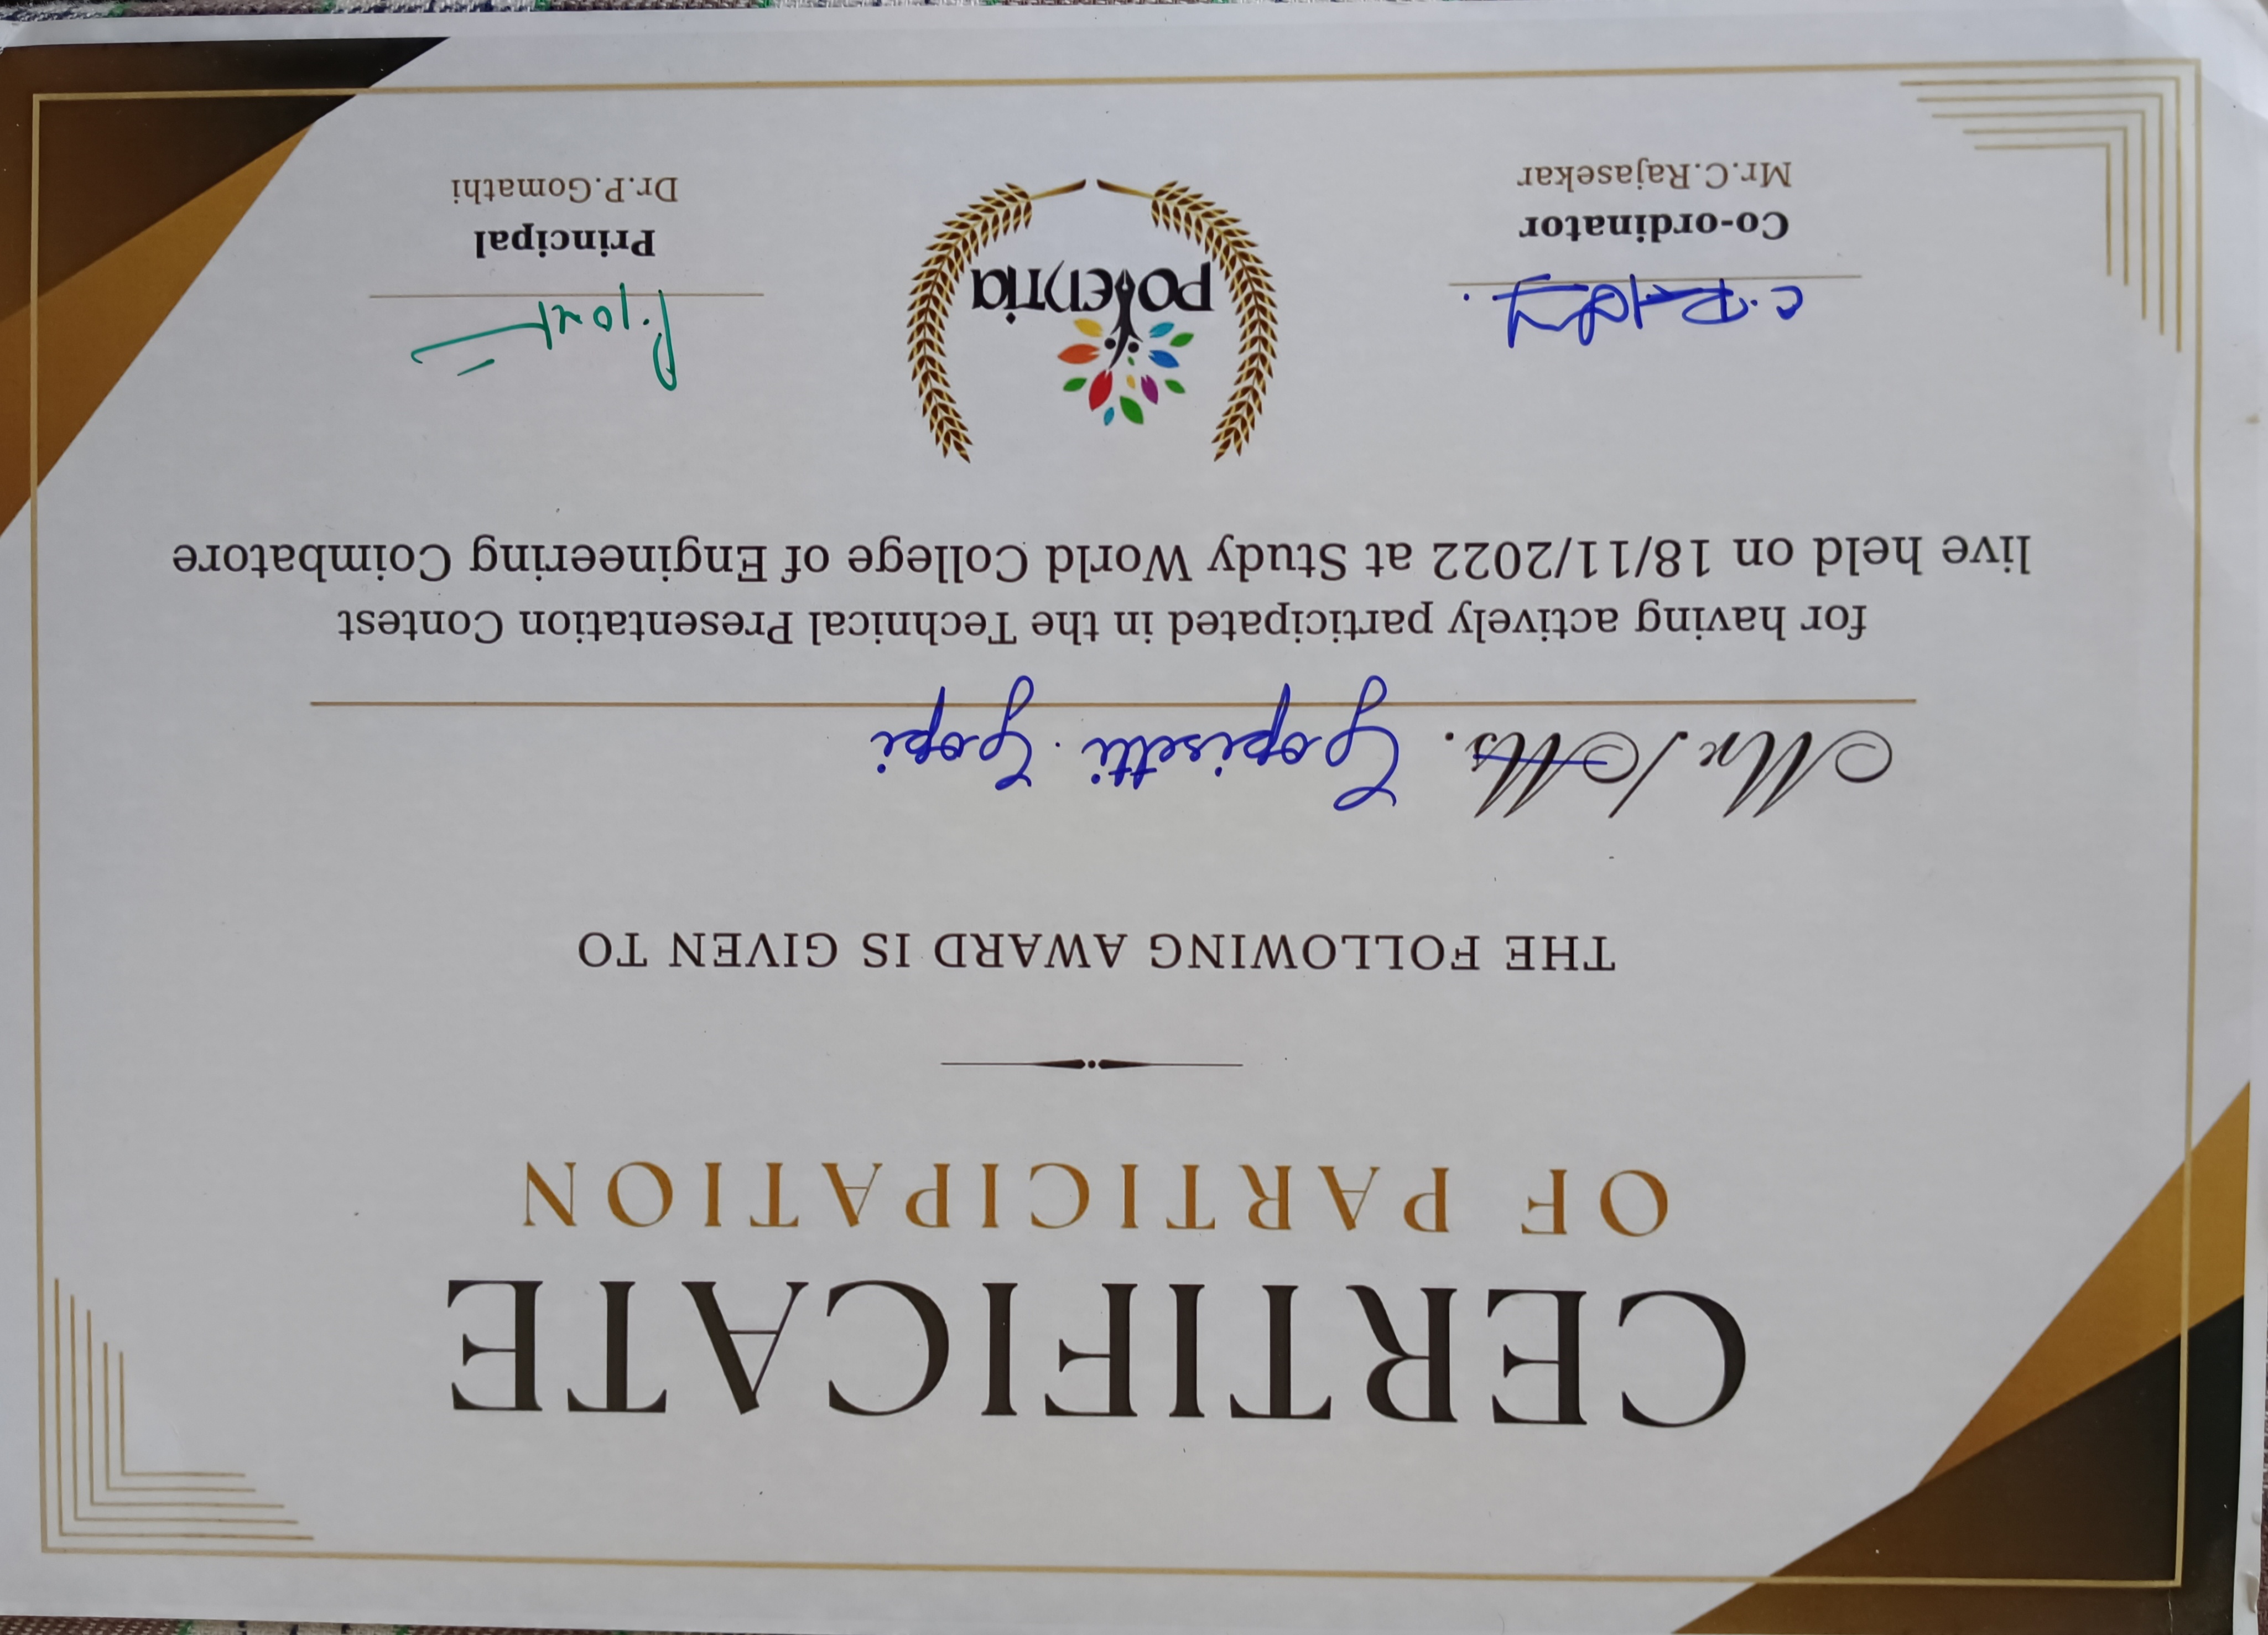 CERTIFICATE
OF PARTICIPATION
THE FOLLOWING AWARD IS GIVEN TO
Mr./Ms. Gopisetti. Gopi
for having actively participated in the Technical Presentation Contest
live held on 18/11/2022 at Study World College of Engineering Coimbatore
POTENTIA
Co-ordinator
Mr.C.Rajasekar
Principal
Dr.P.Gomathi